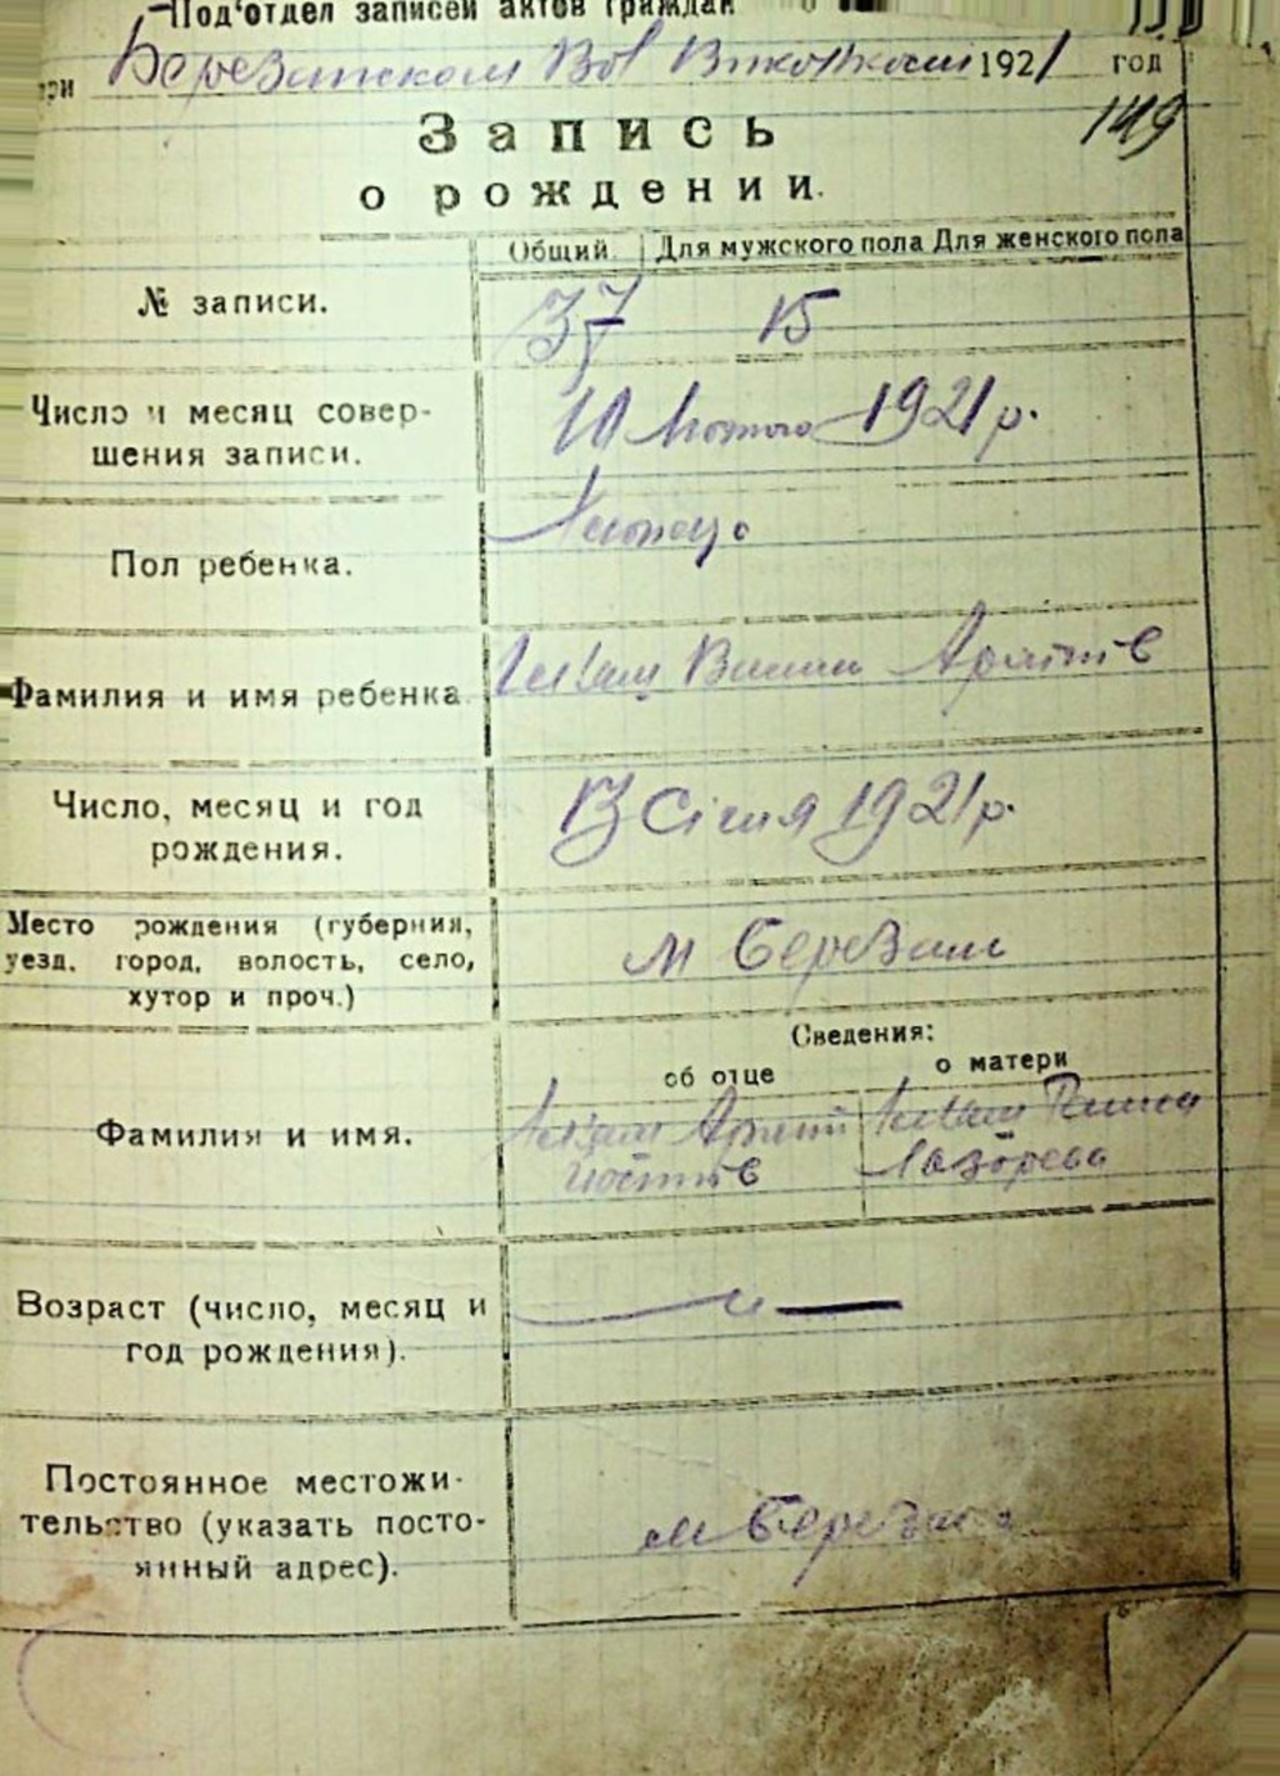 Под‘отдел записей актов граждан
при Березанском Вол Виконкоми 1921 год
149
Запись
о рождении.
Общий. Для мужского пола Для женского пола
№ записи. 37 15
Число и месяц совер-
шения записи. 10 Лютого 1921 р.
Пол ребенка. Хлопець
Фамилия и имя ребенка
Число, месяц и год
рождения. 13 Січня 1921 р.
Место рождения (губерния,
уезд, город, волость, село,
хутор и проч.) м Березань
Сведения:
об отце о матери
Фамилия и имя.
Возраст (число, месяц и
год рождения).
Постоянное местожи-
тельство (указать посто-
янный адрес). м Березань